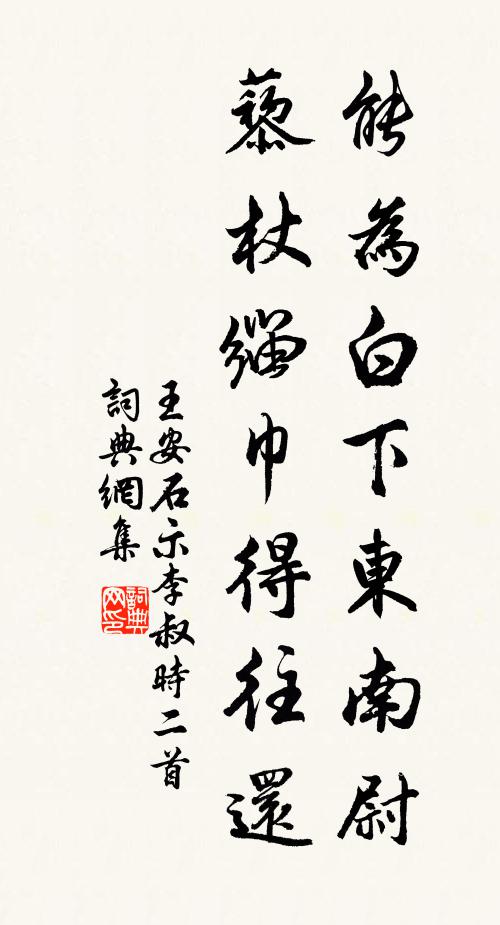 能為白下東南尉
藜杖緇巾得往還
王安石示李叔時二首
詞典網集
詞典网印